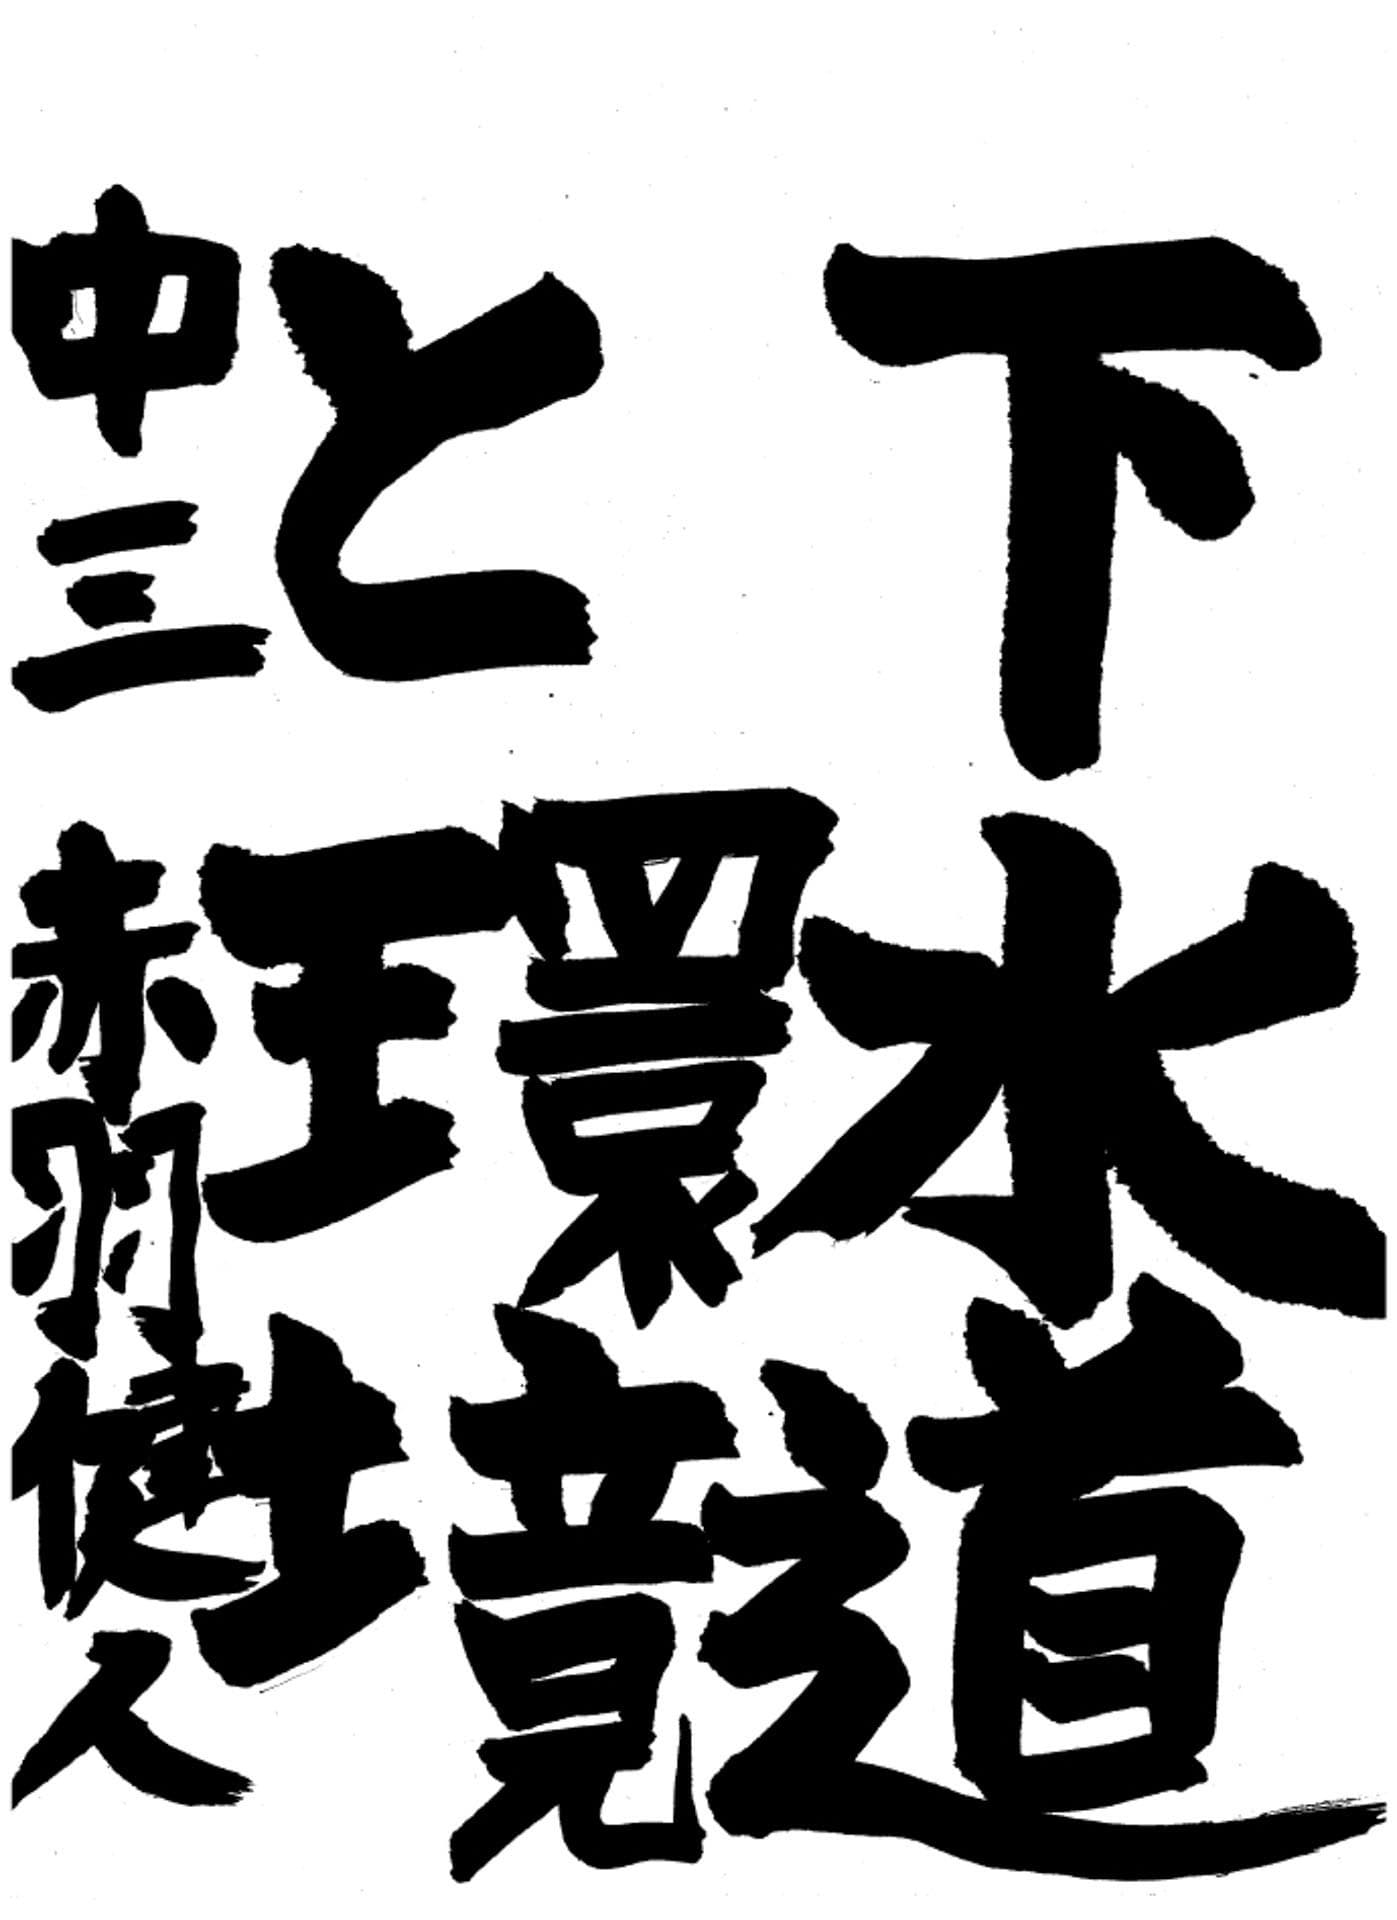 下水道
と環境
中三 赤羽健久